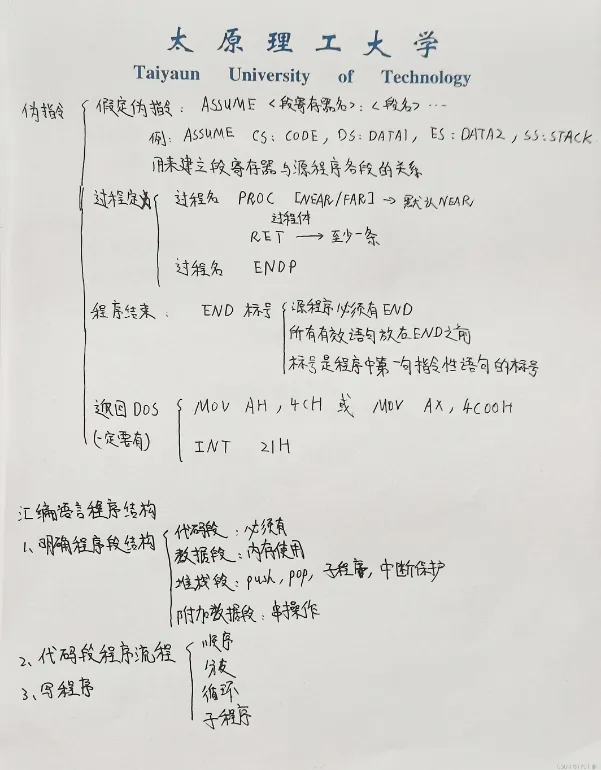 太原理工大学
Taiyaun University of Technology
伪指令 假定伪指令: ASSUME <段寄存器名>: <段名> ...
例: ASSUME CS: CODE, DS: DATA1, ES: DATA2, SS: STACK
用来建立段寄存器与源程序各段的关系
过程定义 过程名 PROC [NEAR/FAR] → 默认NEAR
过程体
RET → 至少一条
过程名 ENDP
程序结束: END 标号 源程序必须有END
所有有效语句放在END之前
标号是程序中第一句指令性语句的标号
返回DOS MOV AH, 4CH 或 MOV AX, 4C00H
(一定要有) INT 21H
汇编语言程序结构
1、明确程序段结构 代码段: 必须有
数据段: 内存使用
堆栈段: push, pop, 子程序, 中断保护
附加数据段: 串操作
2、代码段程序流程 顺序
分支
3、写程序 循环
子程序